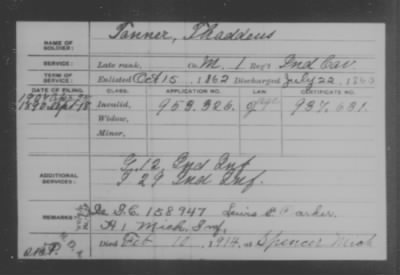 Tanner, Thaddeus
NAME OF SOLDIER:
SERVICE: Late rank, Co. M. 1 Reg't Ind Cav.
TERM OF SERVICE: Enlisted Oct 15, 1862 Discharged July 22, 186
DATE OF FILING. CLASS. APPLICATION NO. LAW. CERTIFICATE NO.
1890 Sept 18 Invalid, 953.326. 937.631.
Widow,
Minor,
ADDITIONAL SERVICES: G. 12 Ind Inf
F 29 Ind Inf.
REMARKS: S.C. 158947 Lewis Parker.
H 1 Mich. Inf,
Died Feb 10, 1914, at Spencer Mich